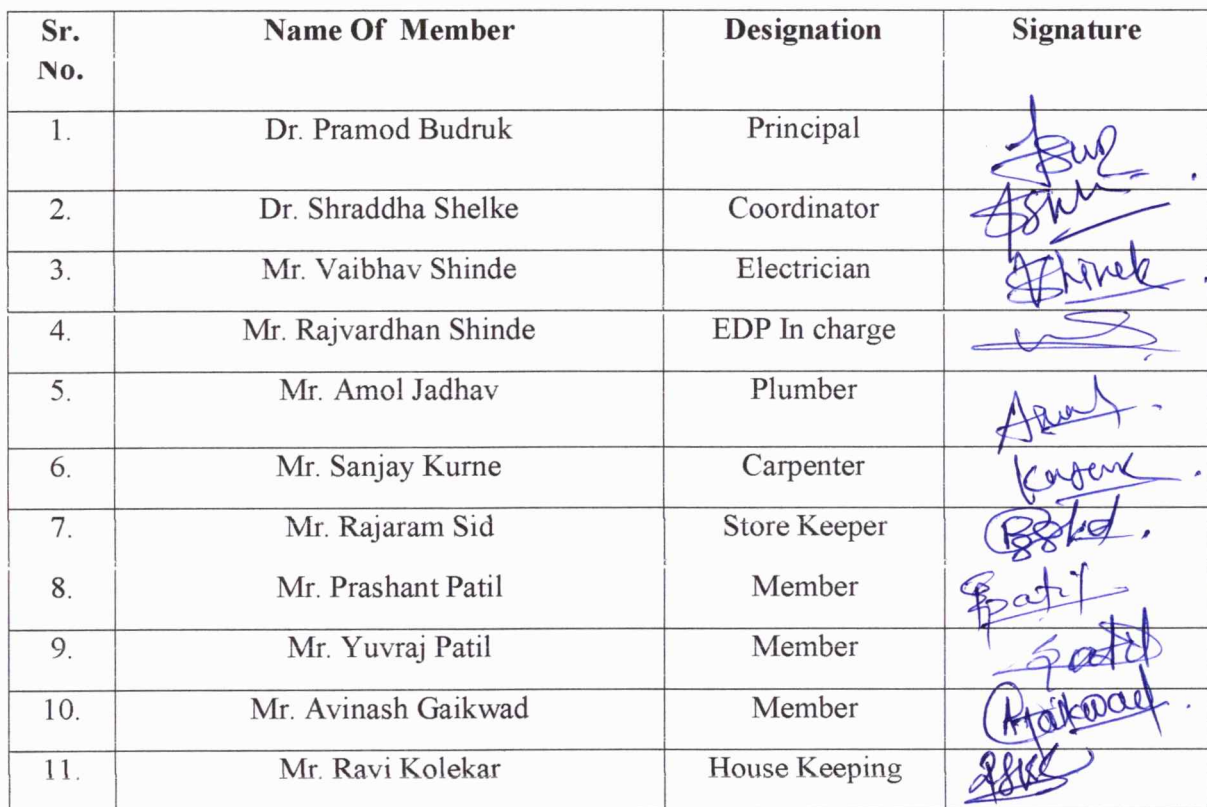 Sr. No. Name Of Member Designation Signature
1. Dr. Pramod Budruk Principal
2. Dr. Shraddha Shelke Coordinator
3. Mr. Vaibhav Shinde Electrician
4. Mr. Rajvardhan Shinde EDP In charge
5. Mr. Amol Jadhav Plumber
6. Mr. Sanjay Kurne Carpenter
7. Mr. Rajaram Sid Store Keeper
8. Mr. Prashant Patil Member Ppatil
9. Mr. Yuvraj Patil Member
10. Mr. Avinash Gaikwad Member AGaikwad
11. Mr. Ravi Kolekar House Keeping